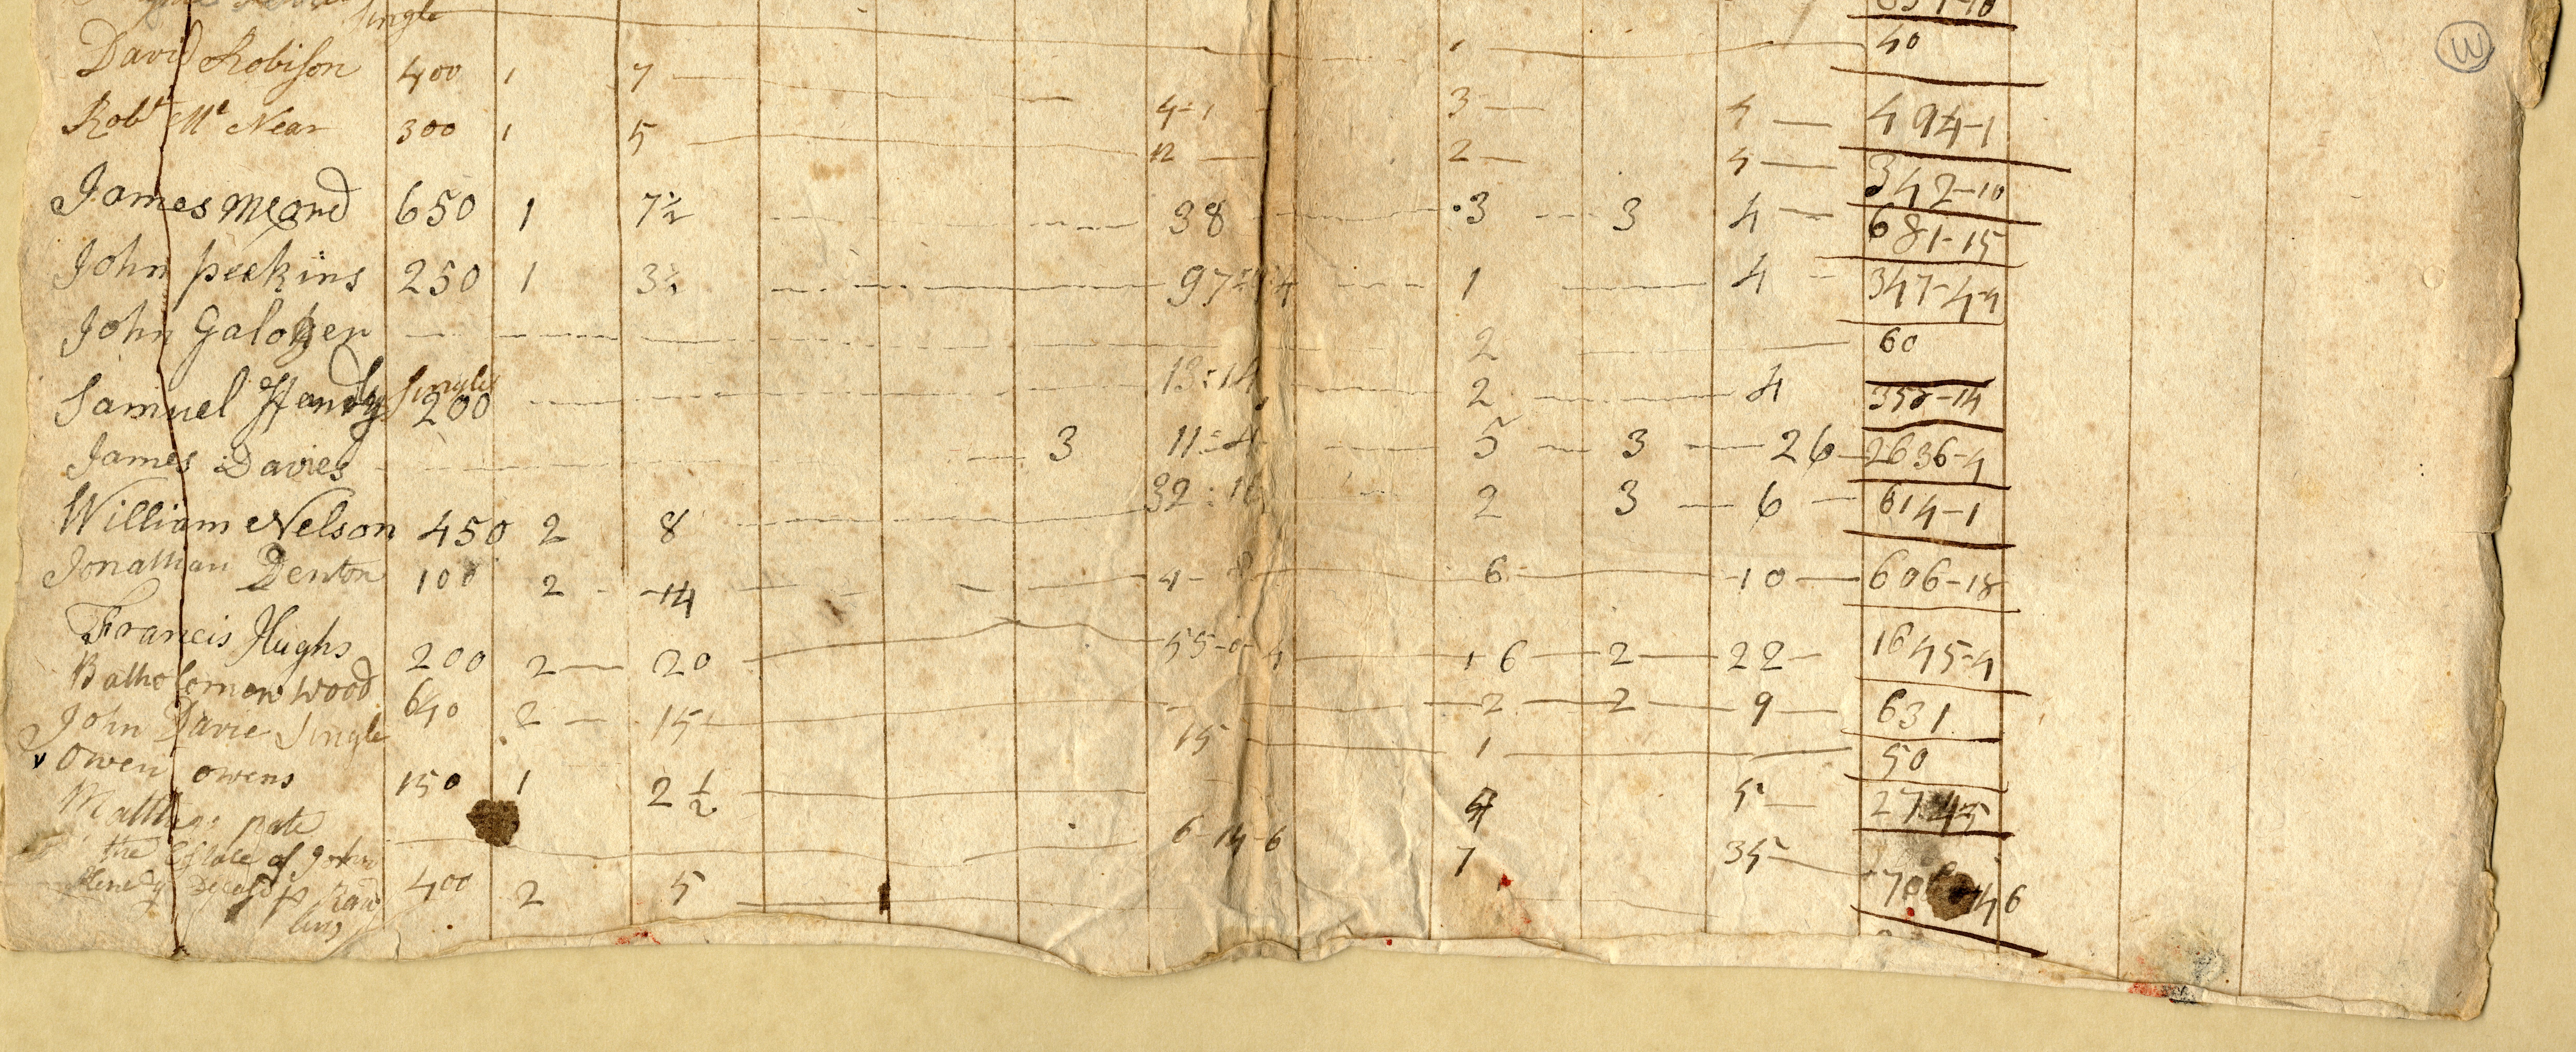 Single
40
David Robison 400 1 7 4-1 3 4 494-1
Robt Mc Near 300 1 5 12 2 4 342-10
James Mcord 650 1 7½ 38 3 3 4 681-15
John perkins 250 1 3½ 97 1 4 347-4-4
John Galoher 2 60
Samuel Handy Single 200 13:14 2 4 352-14
James Davies 3 11:4 5 3 26 2636-4
William Nelson 450 2 8 32:16 2 3 6 614-1
Jonathan Denton 100 2 14 4- 6 10 606-18
Francis Hughs 200 2 20 55-0-4 16 2 22 1645-4
Batholomew Wood 640 2 15 2 2 9 631
John Davie Single 15 1 50
v Owen owens 150 1 2½ 4 5
pate 6-14-6 7 35
the Estate of John
Henery Deceasd p Raw
lins 400 2 5
W